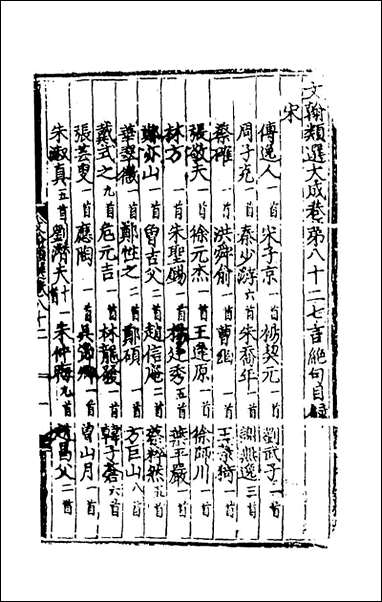 文翰類選大成卷第八十二七言絕句目錄
宋
傅逸人一首 宋子京一首 楊契元一首 劉武子一首
周子充一首 秦少游六首 朱喬年一首 謝無逸三首
蔡確一首 洪舜俞一首 曹豳一首 王濟猗一首
張敬夫一首 徐元杰一首 王逢原一首 徐師川一首
林方一首 朱聖錫一首 楊廷秀五首 葉平巖一首
山一首 曾吉父二首 趙信庵二首 蔡粹然一首
華翠微一首 鄭性之二首 鄭碩一首 方巨山八首
戴式之九首 危元吉一首 林龍發一首 韓子蒼六首
張芸叟一首 應陶一首 吳 卿一首 曾山月一首
朱淑真五首 劉潛夫十一首 朱仲晦九首 趙昌父二首
八十二